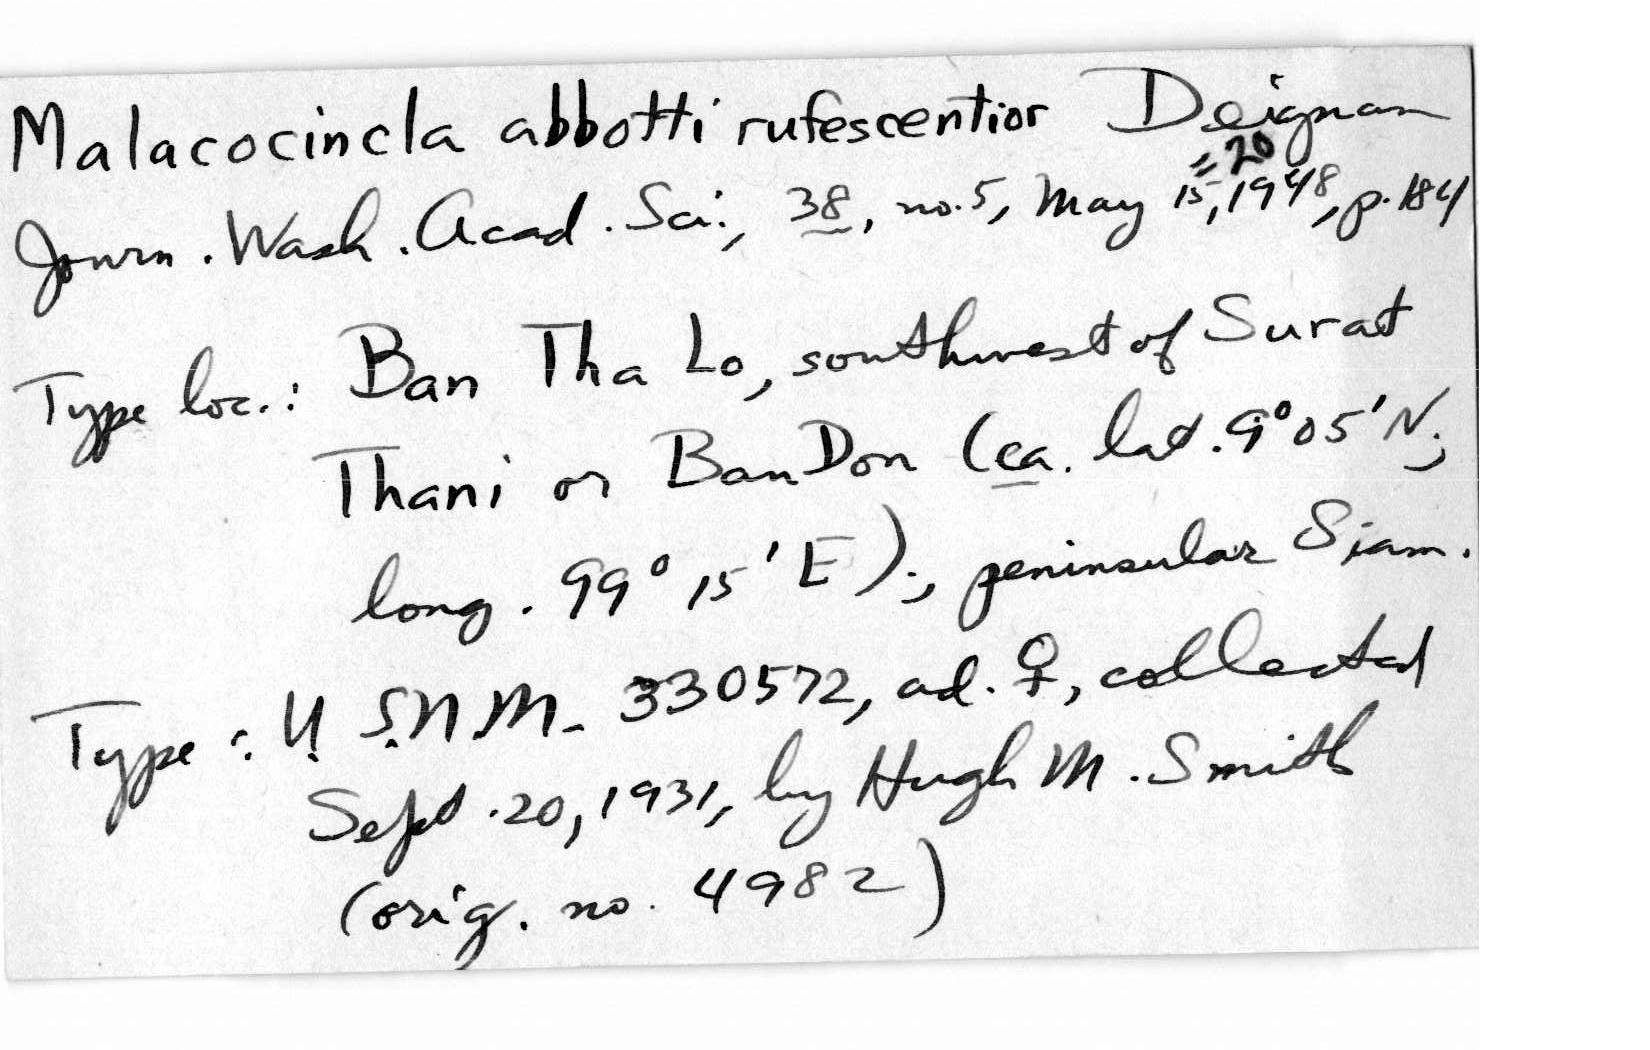 Malacocincla abbotti rufescentior Deignan
=20
Journ. Wash. Acad. Sci., 38, no. 5, May 15, 1948, p. 184
Type loc.: Ban Tha Lo, southwest of Surat
Thani or Ban Don (ca. lat. 9°05'N;
long. 99°15'E); peninsular Siam.
Type: U.S.N.M. 330572, ad. ♀, collected
Sept. 20, 1931, by Hugh M. Smith
(orig. no. 4982)